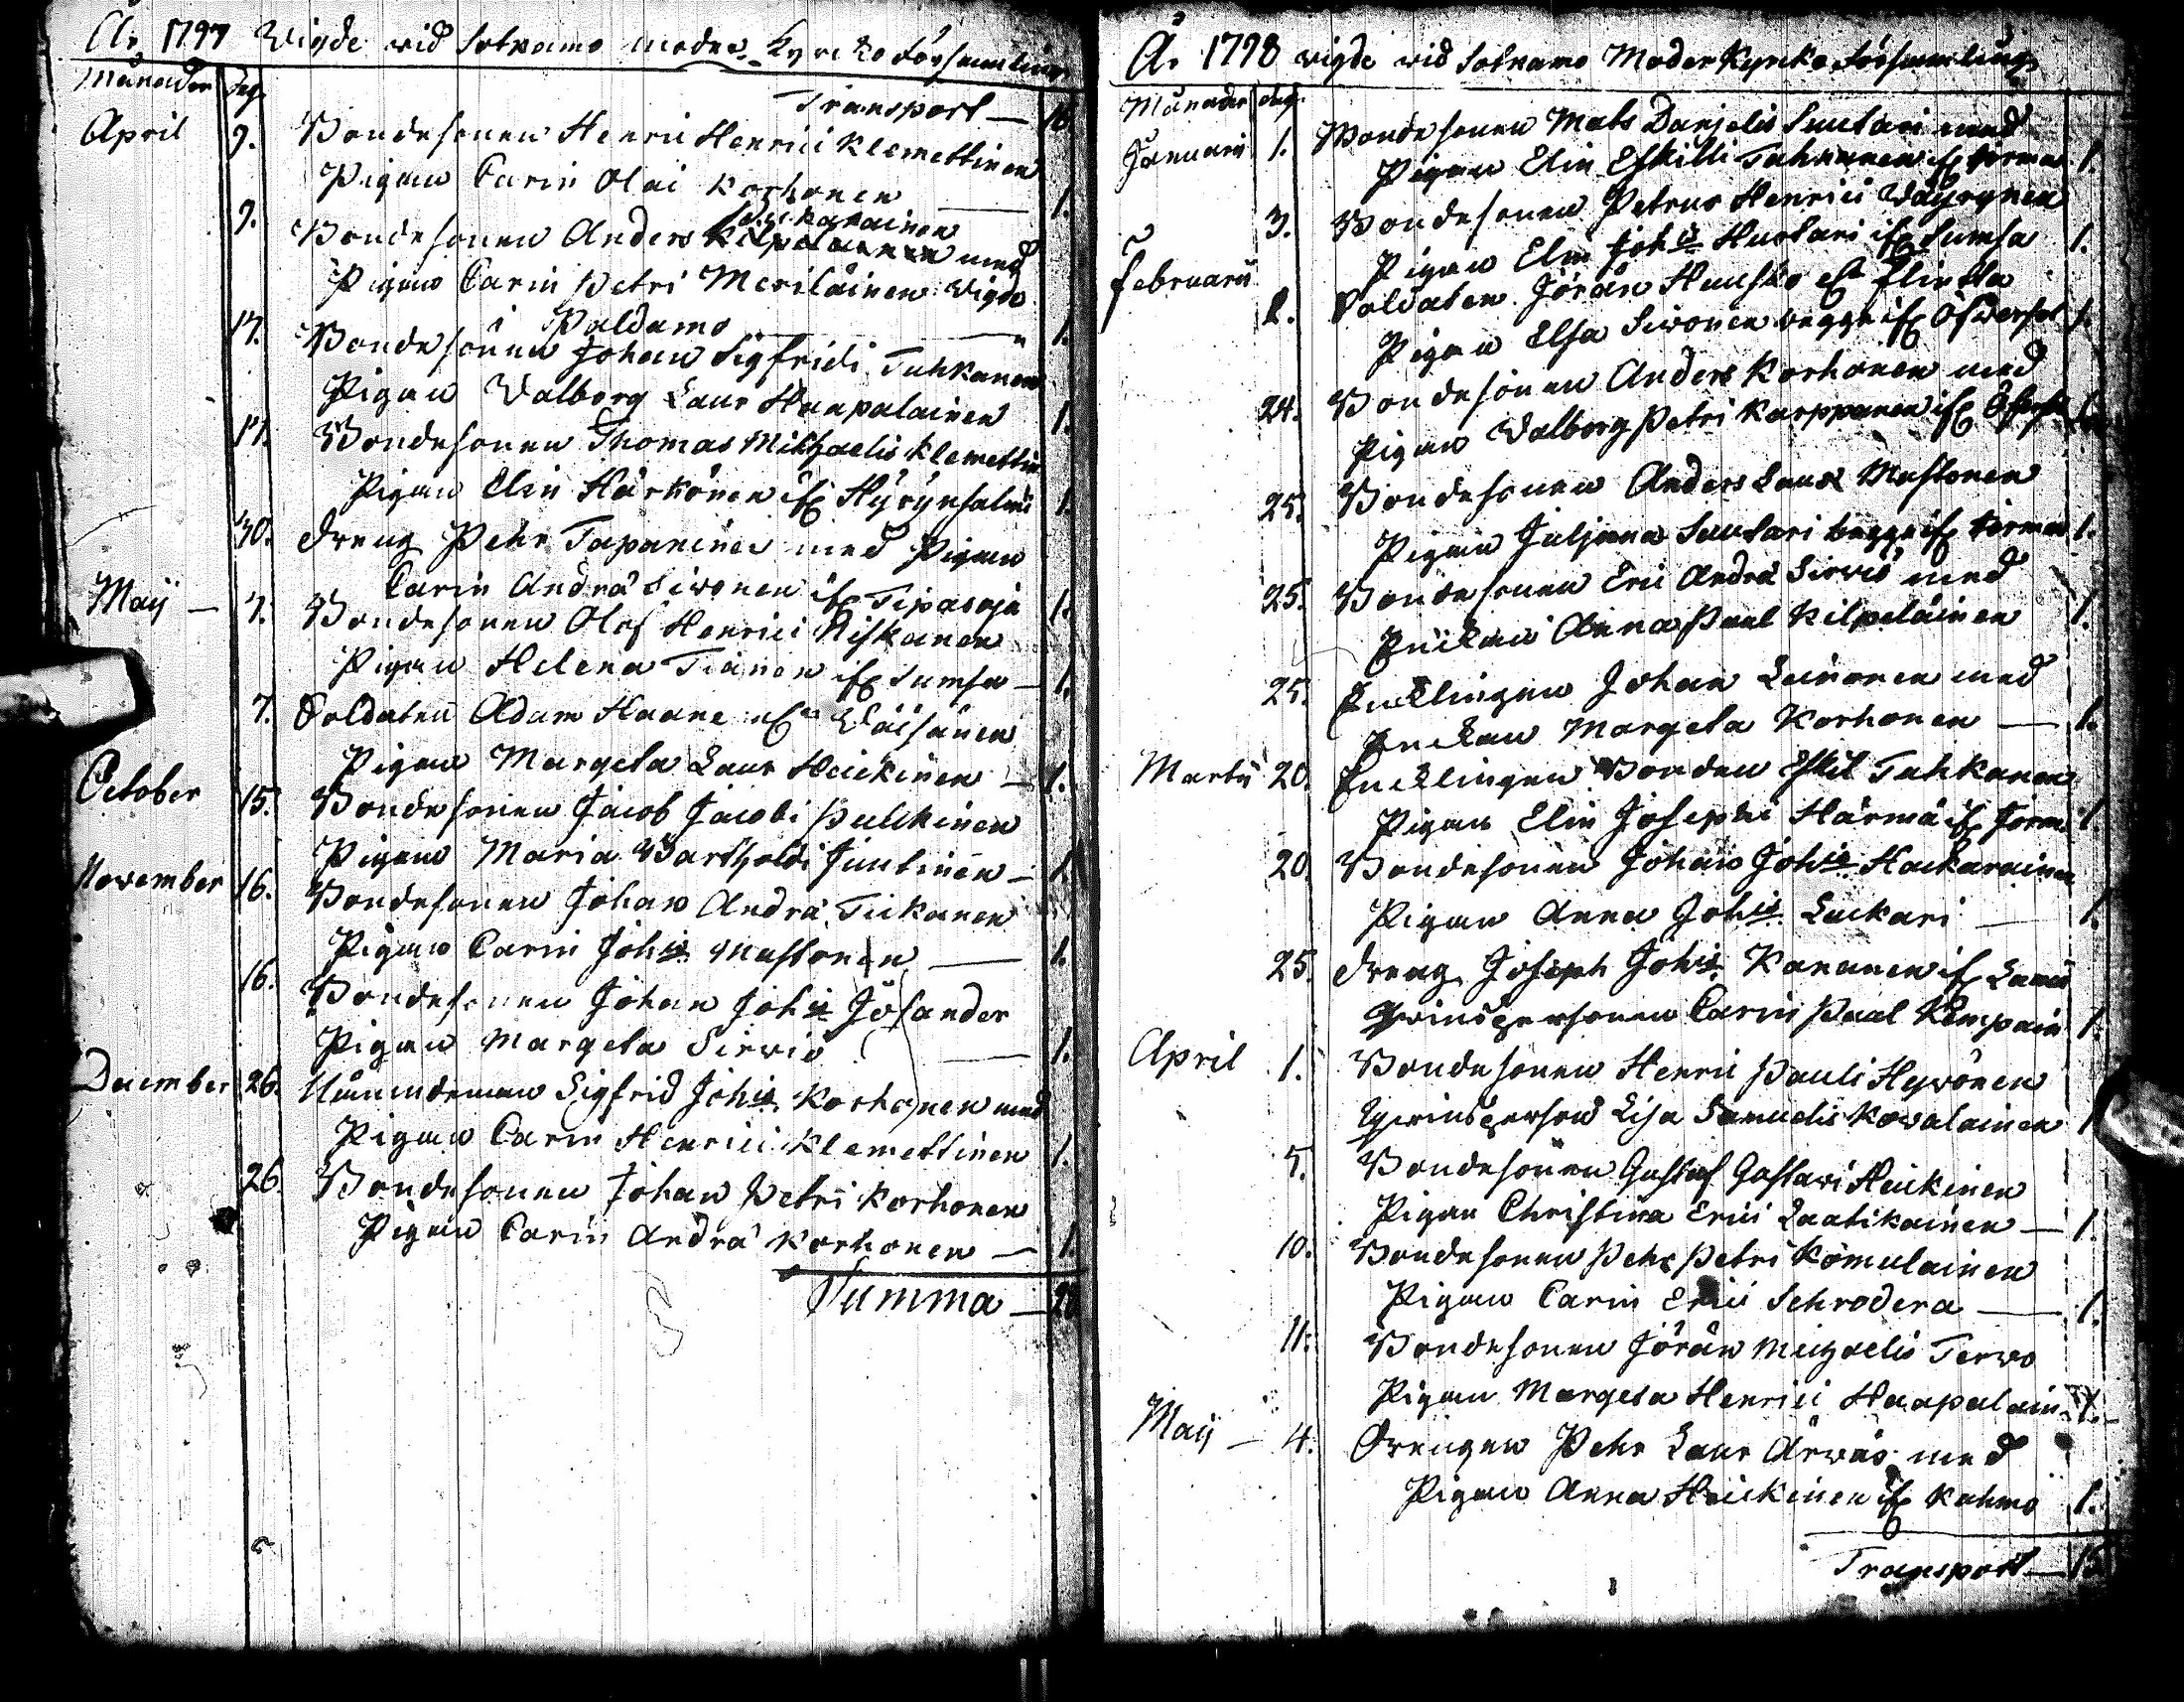 År 1797 Wigde wid Sotkamo moder Kyrko Församling
Månader dag.
Transport — 16.
April 9. Bondesonen Henric Henrici Klemettinen
Pigan Carin Olai Korhonen — 1.
9. Bondesonen Anders Kilpeläinen med
Pigan Carin Petri Meriläinen wigde
i Paldamo — 1.
17. Bondesonen Johan Sigfridi Tuhkanen
Pigan Walborg Laur Haapalainen 1.
17. Bondesonen Thomas Michaelis Klemettin
Pigan Elin Härkönen if. Hyrynsalmi 1.
30. Dreng Pehr Tapaninen med Pigan
Carin Andrä Siwonen if. Tipasoja 1.
Maij — 7. Bondesonen Olof Henrici Niskanen
Pigan Helena Tianen if. Sumsa — 1.
7. Soldaten Adam Haane el. Wäisänen
Pigan Margeta Laur Heickinen — 1.
October 15. Bondesonen Jacob Jacobi Pulckinen
Pigan Maria Bartholdi Juntinen — 1.
November 16. Bondesonen Johan Andrä Tickanen
Pigan Carin Joh:is Mustonen — 1.
16. Bondesonen Johan Joh:is Josander
Pigan Margeta Sirwiö — 1.
December 26. Nämndeman Sigfrid Joh:is Korhonen med
Pigan Carin Henrici Klemettinen 1.
26. Bondesonen Johan Petri Korhonen
Pigan Carin Andrä Korhonen — 1.
Summa — 28
År 1798 wigde wid Sotkamo Moder Kyrko Församling
Månader dag.
Januarii 1. Bondesonen Mats Danjelis Suutari med
Pigan Elin Eskilli Tuhkanen if. Jorma 1.
3. Bondesonen Petrus Henrici Wäyrynen
Pigan Elin Joh:is Huotari if. Sumsa 1.
Februarii 2. Soldaten Jöran Hausko el. Flintta
Pigan Elsa Siwonen begge if. Öfwersot 1.
24. Bondesonen Anders Korhonen med
Pigan Walborg Petri Karppanen if.
25. Bondesonen Anders Laur Mustonen
Pigan Juljana Suutari begge if. Jorma 1.
25. Bondesonen Eric Andrä Sirwiö med
Enckan Anna Paul Kilpeläinen 1.
25. Encklingen Johan Leinonen med
Enckan Margeta Korhonen — 1.
Martii 20. Encklingen Bonden Eskil Tuhkanen
Pigan Elin Josephi Härmä if. Jorm. 1.
20. Bondesonen Johan Joh:is Hackarainen
Pigan Anna Joh:is Luckari — 1.
25. Dreng Joseph Joh:is Kananen if.
Qwinspersonen Carin Paul Kempain 1.
April 1. Bondesonen Henric Pauli Hywönen
Qwinsperson Lisa Samuelis Kowalainen 1
5. Bondesonen Gustaf Gustavi Heickinen
Pigan Christina Erici Laatikainen — 1.
10. Bondesonen Pehr Petri Komulainen
Pigan Carin Erici Schrodera — 1.
11. Bondesonen Jöran Michaelis Terwo
Pigan Margeta Henrici Haapalain. 1.
Maij — 4. Drengen Pehr Laur Ärwäs med
Pigan Anna Heickinen if. Kuhmo 1.
Transport — 15